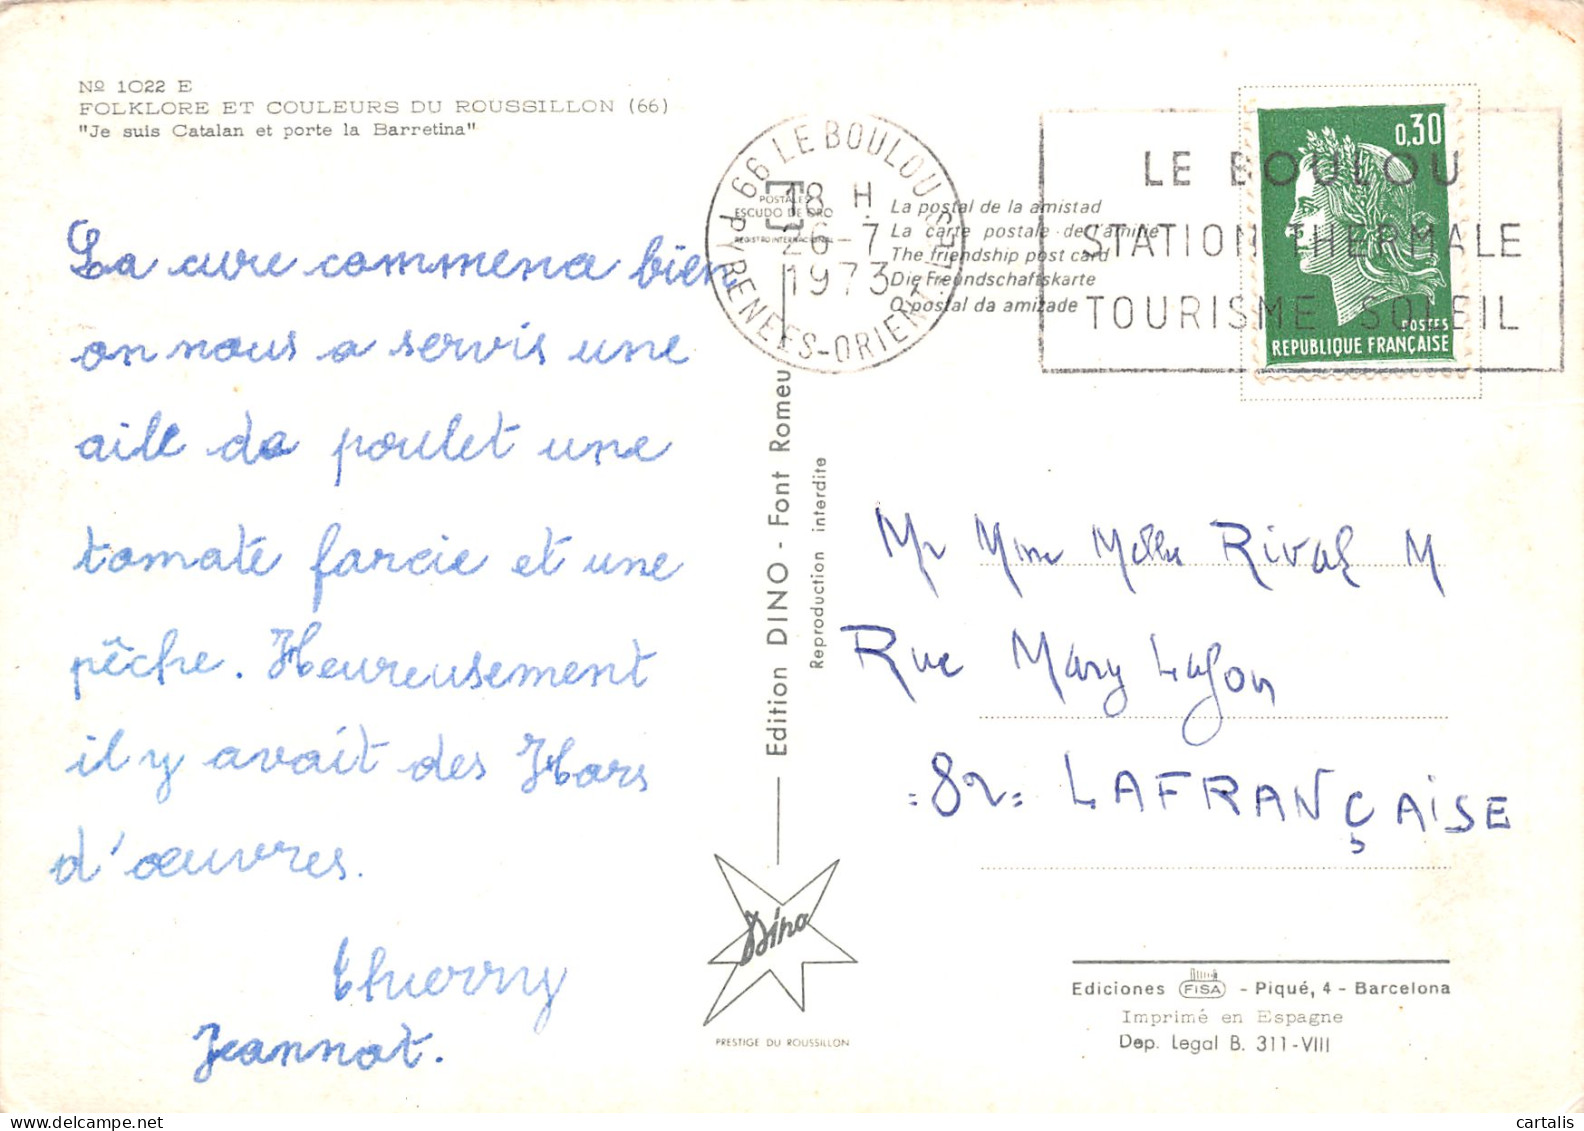 Nº 1022 E
FOLKLORE ET COULEURS DU ROUSSILLON (66)
"Je suis Catalan et porte la Barretina"
La cure commence bien
on nous a servis une
aile de poulet une
tomate farcie et une
pêche. Heureusement
il y avait des Hors
d'œuvres.
Thierry
Jeannot.
66 LE BOULOU
18 H
26-7
1973
PYRENEES-ORIENTALES
POSTALES
ESCUDO DE ORO
REGISTRO INTERNACIONAL
La postal de la amistad
La carte postale de l'amitié
The friendship post card
Die Freundschaftskarte
O postal da amizade
LE BOULOU
STATION THERMALE
TOURISME SOLEIL
0,30
POSTES
REPUBLIQUE FRANÇAISE
Edition DINO - Font Romeu
Reproduction interdite
Mr Mme Melle Rival M
Rue Mary Lafon
=82= LAFRANÇAISE
Dino
PRESTIGE DU ROUSSILLON
Ediciones FISA - Piqué, 4 - Barcelona
Imprimé en Espagne
Dep. Legal B. 311-VIII
cartalis